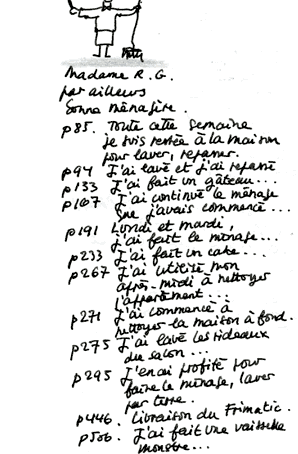 Madame R.G.
par ailleurs
bonne ménagère.
p85. Toute cette semaine
je suis restée à la maison
pour laver, repasser.
p94 J'ai lavé et j'ai repassé
p133 J'ai fait un gâteau...
p167 J'ai continué le ménage
que j'avais commencé...
p191 Lundi et mardi,
j'ai fait le ménage...
p233 J'ai fait un cake...
p267 J'ai utilisé mon
après-midi à nettoyer
l'appartement...
p271 J'ai commencé à
nettoyer la maison à fond.
p275 J'ai lavé les rideaux
du salon...
p295 J'en ai profité pour
faire le ménage, laver
par terre.
p446. Livraison du Frimatic.
p506. J'ai fait une vaisselle
monstre...